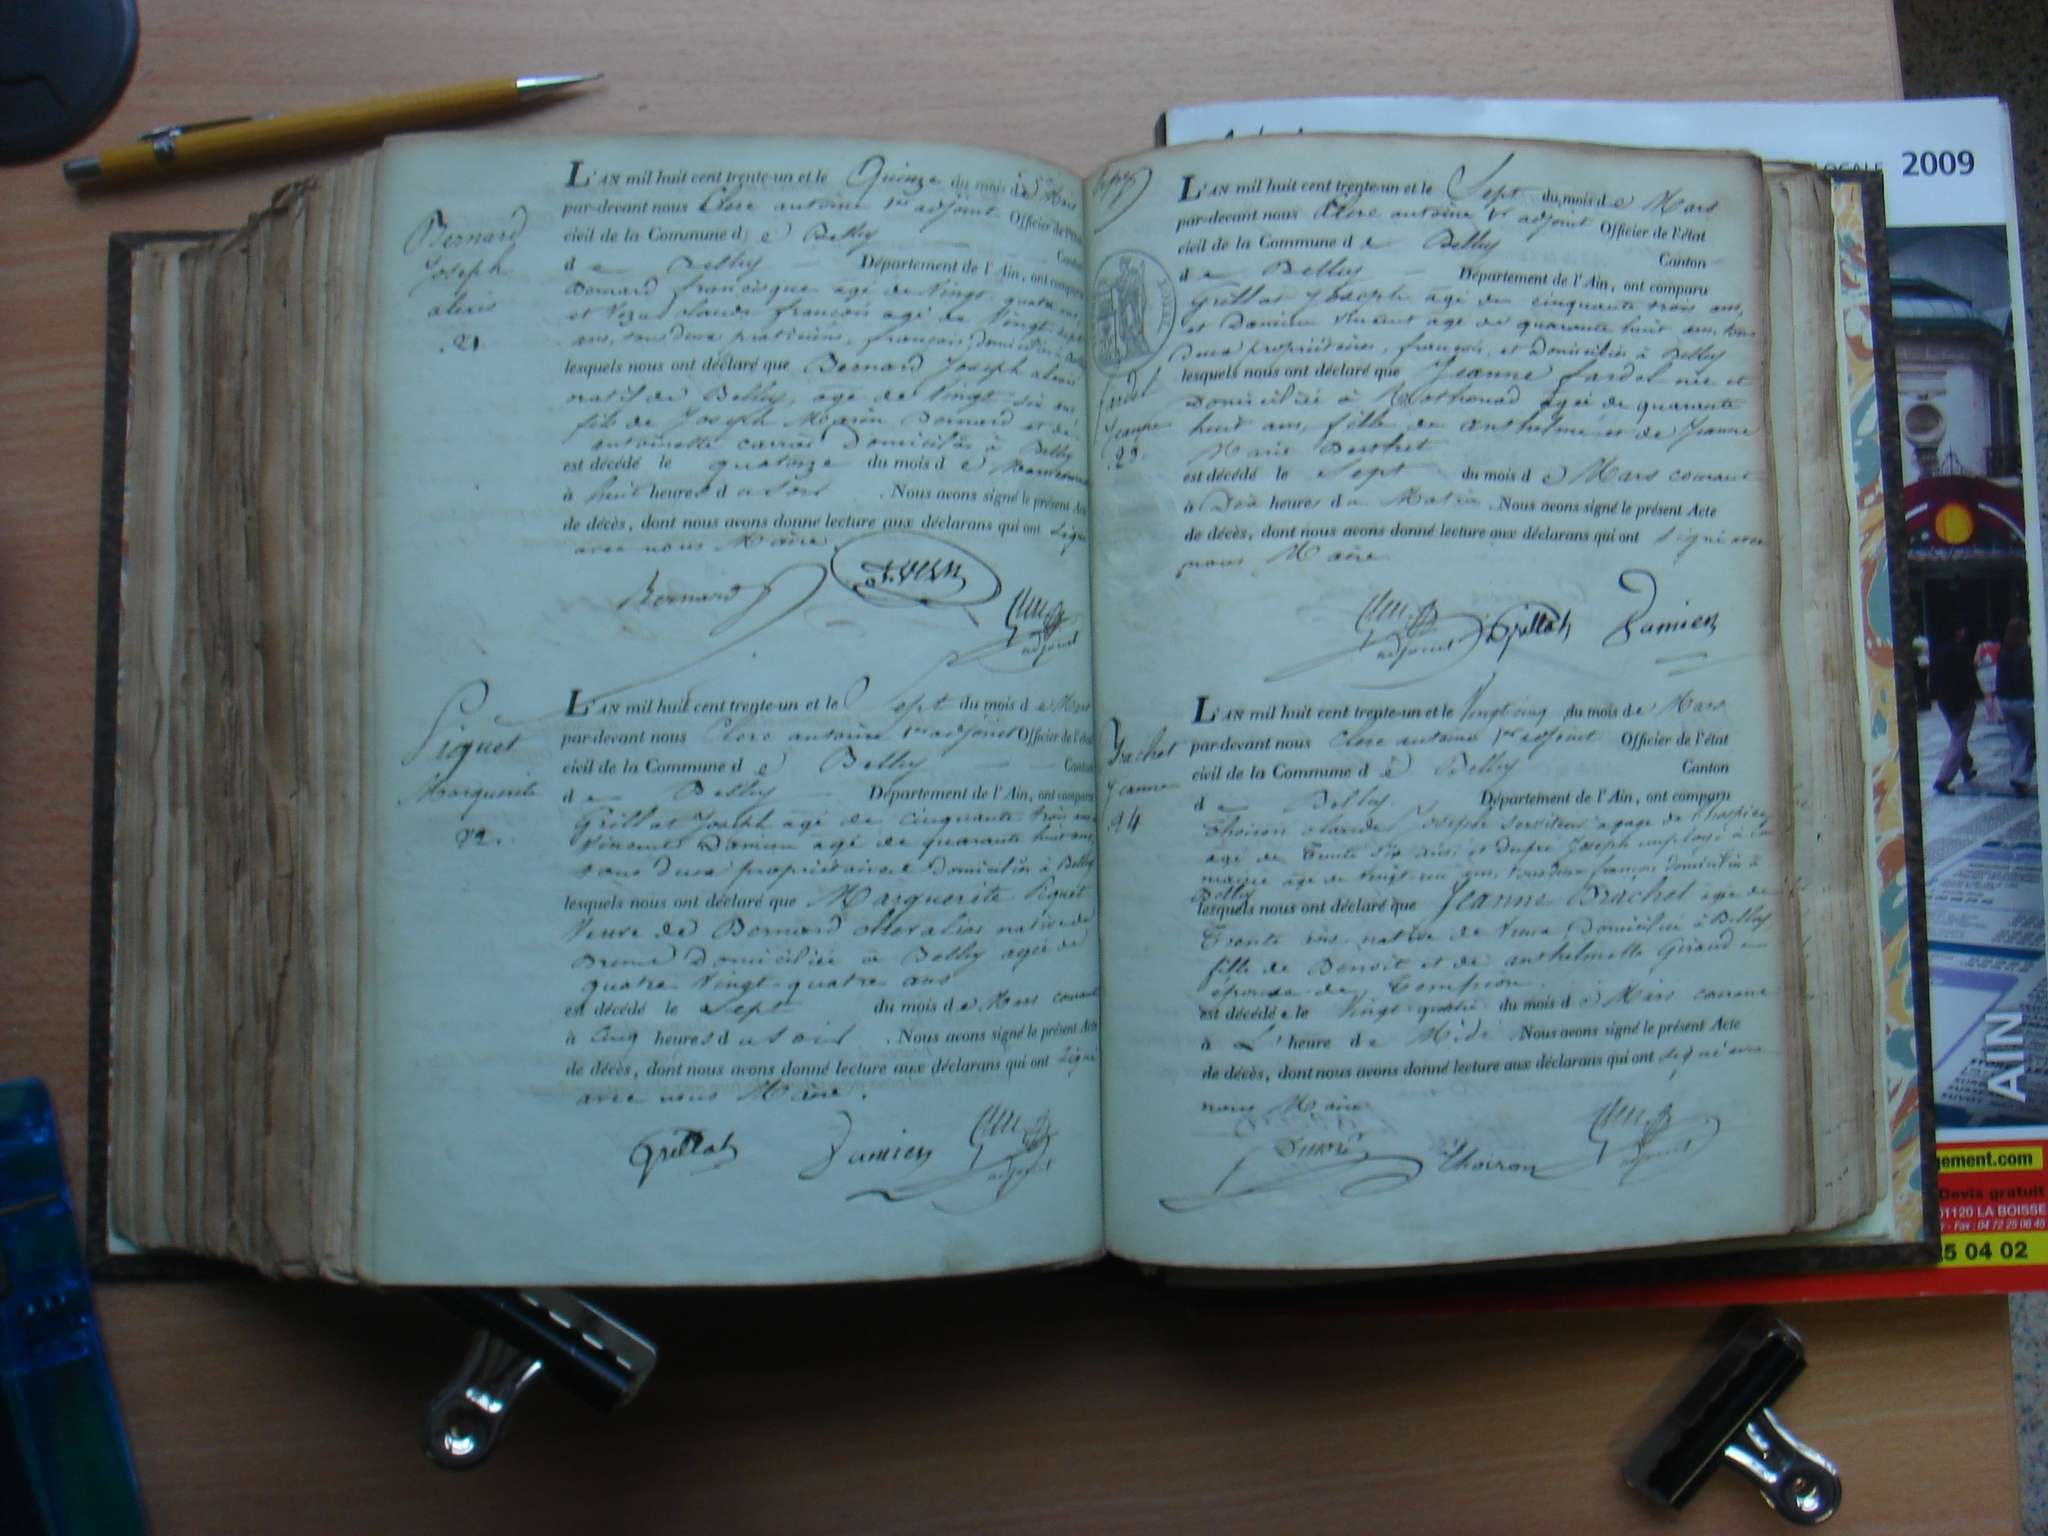 Bernard
Joseph
alexis
.21
L'AN mil huit cent trente-un et le Quinze du mois de Mars
par-devant nous Clerc antoine 1er adjoint Officier de l'état
civil de la Commune de Belley Canton
de Belley Département de l'Ain, ont comparu
Bernard francisque agé de Vingt quatre ans
et claude françois agé de Vingt sept
ans, tous deux praticiens, français, domiciliés à
lesquels nous ont déclaré que Bernard Joseph alexis
natif de Belley, agé de Vingt six ans
fils de Joseph Bernard et de
antoinette Domicilié à Belley
est décédé le quatorze du mois de Mars courant
à huit heures du soir. Nous avons signé le présent Acte
de décès, dont nous avons donné lecture aux déclarans qui ont signé
avec nous Maire.
Bernard
adjoint
Piquet
Marguerite
22.
L'AN mil huit cent trente-un et le Sept du mois de Mars
par-devant nous Clerc antoine 1er adjoint Officier de l'état
civil de la Commune de Belley Canton
de Belley Département de l'Ain, ont comparu
Grillat Joseph agé de cinquante trois ans
Vincent Damien agé de quarante huit ans,
tous deux propriétaires Domiciliés à Belley
lesquels nous ont déclaré que Marguerite Piquet
Veuve de Bernard native de
Domiciliée à Belley agée de
quatre Vingt-quatre ans
est décédé le Sept du mois de Mars courant
à Cinq heures du soir. Nous avons signé le présent Acte
de décès, dont nous avons donné lecture aux déclarans qui ont signé
avec nous Maire.
Grillat Damien
adjoint
fardel
Jeanne
.23.
L'AN mil huit cent trente-un et le Sept du mois de Mars
par-devant nous Clerc antoine 1er adjoint Officier de l'état
civil de la Commune de Belley Canton
de Belley Département de l'Ain, ont comparu
Grillat Joseph agé de cinquante trois ans,
et Damien Vincent agé de quarante huit ans, tous
deux propriétaires, français, et Domiciliés à Belley
lesquels nous ont déclaré que Jeanne fardel née et
Domiciliée à agée de quarante
huit ans, fille de anthelme et de Jeanne
Marie Berthet
est décédé le Sept du mois de Mars courant
à Dix heures du Matin. Nous avons signé le présent Acte
de décès, dont nous avons donné lecture aux déclarans qui ont signé avec
nous Maire
adjoint Grillat Damien
Brachet
Jeanne
24
L'AN mil huit cent trente-un et le Vingt cinq du mois de Mars
par-devant nous Clerc antoine 1er adjoint Officier de l'état
civil de la Commune de Belley Canton
de Belley Département de l'Ain, ont comparu
Thoiron claude Joseph serviteur à gage de l'hospice
agé de Trente six ans, et Dupré Joseph employé à la
mairie agé de Vingt ans, tous deux français domiciliés à
Belley
lesquels nous ont déclaré que Jeanne Brachet agée de
Trente ans, native de Domiciliée à Belley
fille de Benoit et de anthelmette Giraud
épouse de
est décédée le Vingt quatre du mois de Mars courant
à L'heure de Midi. Nous avons signé le présent Acte
de décès, dont nous avons donné lecture aux déclarans qui ont signé avec
nous Maire
Dupré Thoiron
adjoint
LOCALE 2009
AIN
gement.com
Devis gratuit
01120 LA BOISSE
Fax : 04 72 25 06 45
25 04 02